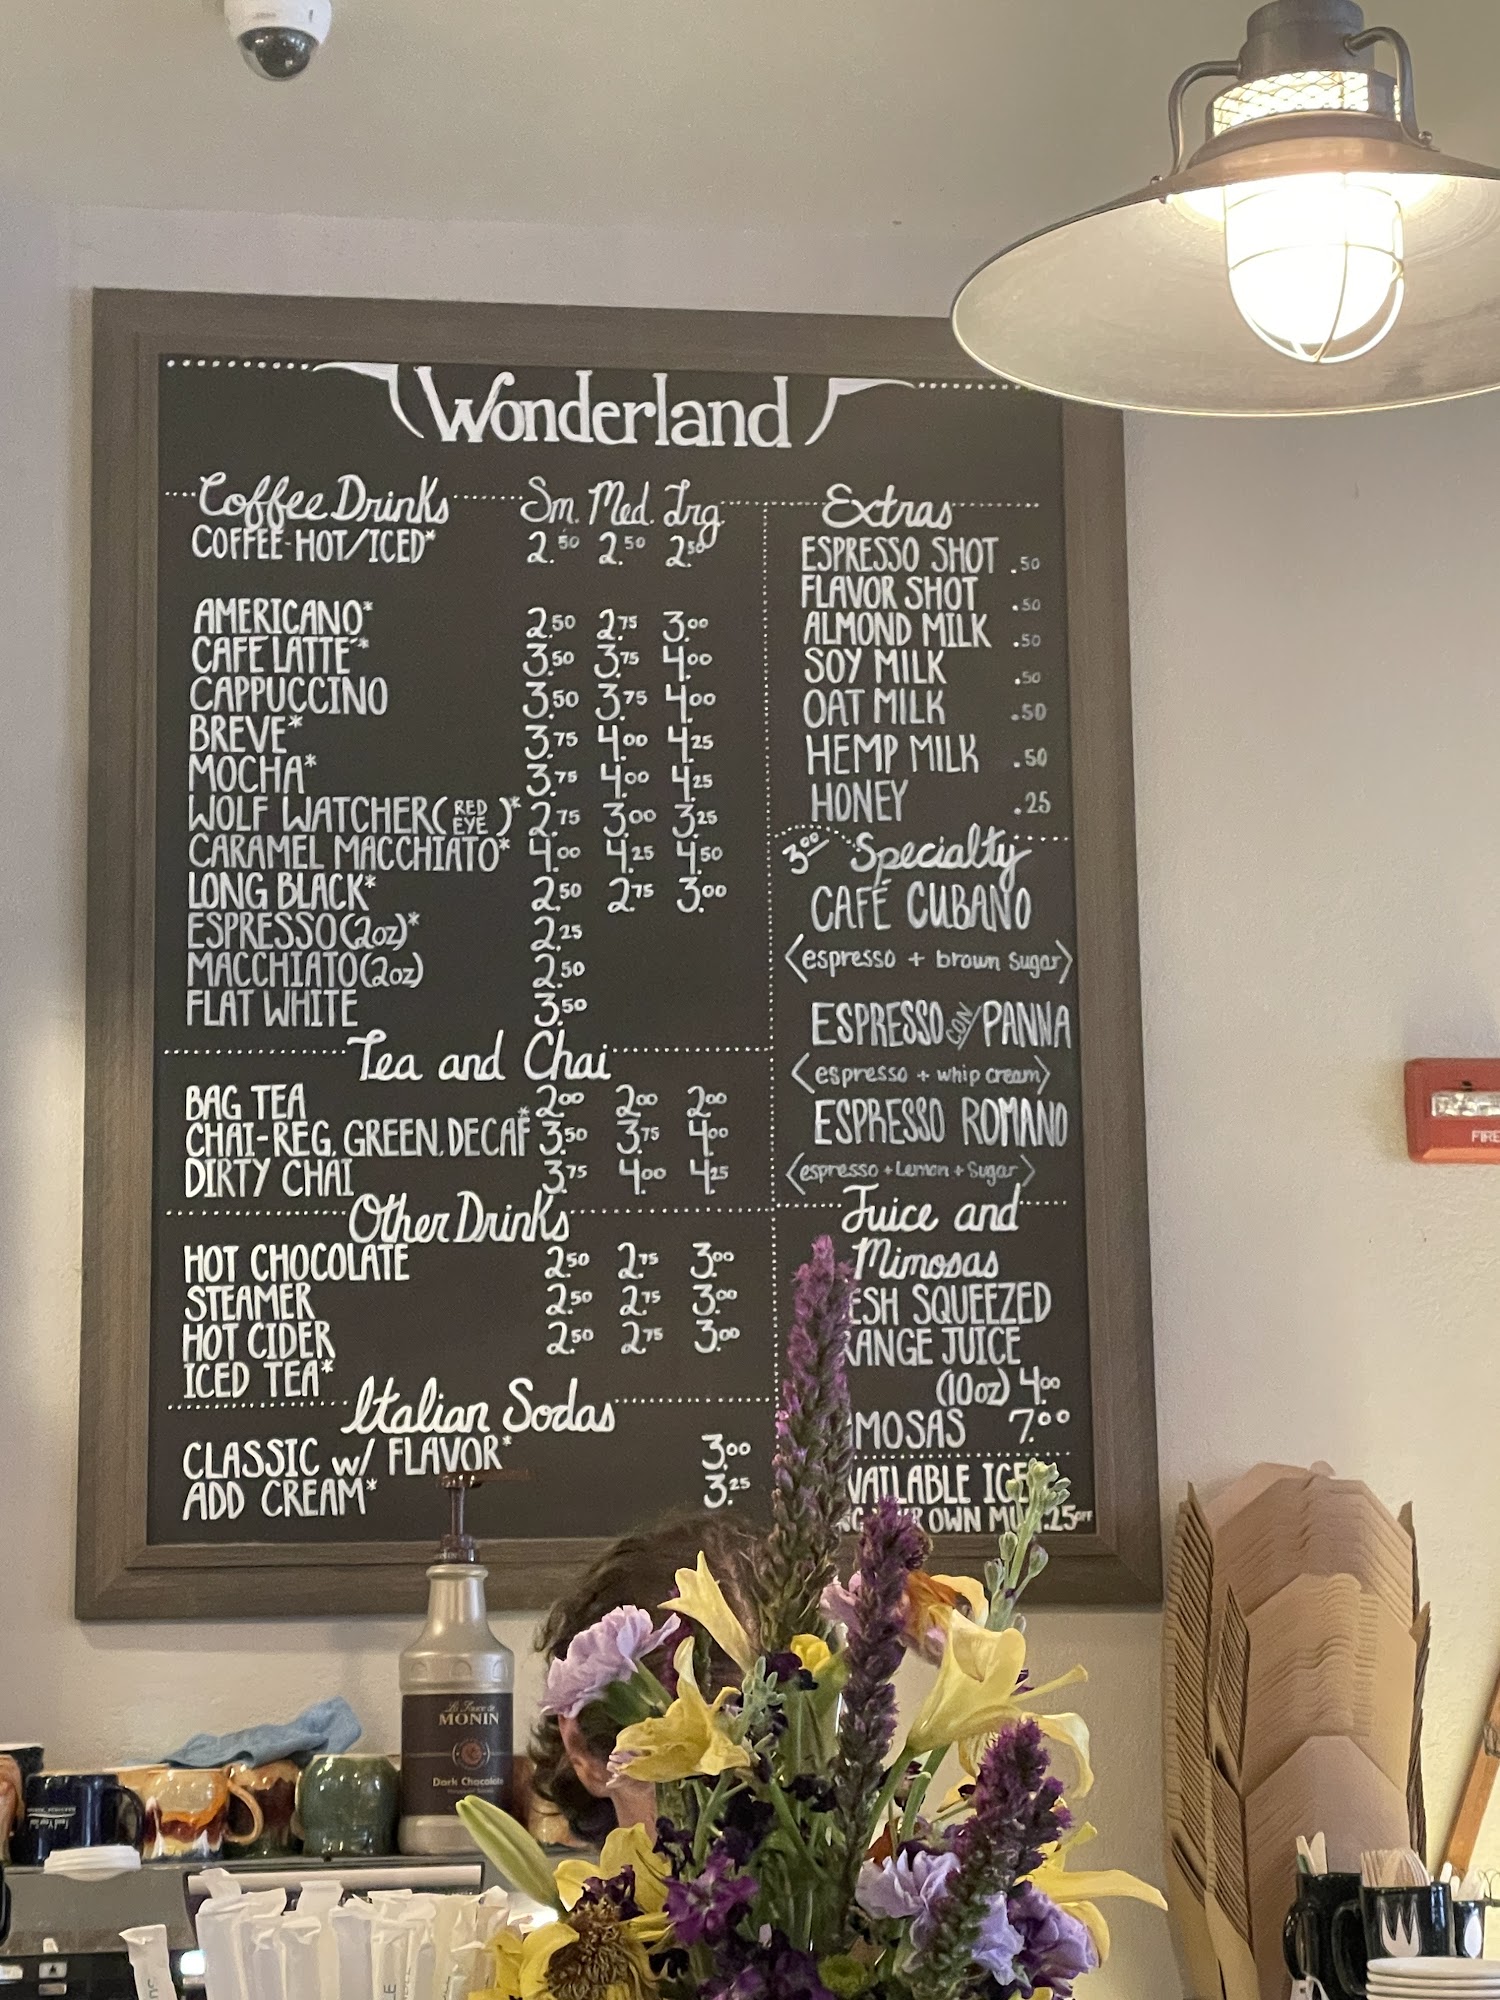 Wonderland
Coffee Drinks Sm. Med. Lrg.
COFFEE-HOT/ICED* 2.50 2.50 2.50
AMERICANO* 2.50 2.75 3.00
CAFE LATTE* 3.50 3.75 4.00
CAPPUCCINO 3.50 3.75 4.00
BREVE* 3.75 4.00 4.25
MOCHA* 3.75 4.00 4.25
WOLF WATCHER (RED EYE)* 2.75 3.00 3.25
CARAMEL MACCHIATO* 4.00 4.25 4.50
LONG BLACK* 2.50 2.75 3.00
ESPRESSO (2oz)* 2.25
MACCHIATO (2oz) 2.50
FLAT WHITE 3.50
Tea and Chai
BAG TEA 2.00 2.00 2.00
CHAI-REG, GREEN, DECAF* 3.50 3.75 4.00
DIRTY CHAI 3.75 4.00 4.25
Other Drinks
HOT CHOCOLATE 2.50 2.75 3.00
STEAMER 2.50 2.75 3.00
HOT CIDER 2.50 2.75 3.00
ICED TEA*
Italian Sodas
CLASSIC w/ FLAVOR* 3.00
ADD CREAM* 3.25
Extras
ESPRESSO SHOT .50
FLAVOR SHOT .50
ALMOND MILK .50
SOY MILK .50
OAT MILK .50
HEMP MILK .50
HONEY .25
3.00 Specialty
CAFÉ CUBANO
<espresso + brown sugar>
ESPRESSO CON PANNA
<espresso + whip cream>
ESPRESSO ROMANO
<espresso + Lemon + Sugar>
Juice and
Mimosas
ESH SQUEEZED
RANGE JUICE
(10oz) 4.00
MOSAS 7.00
VAILABLE ICE
OWN MU .25 OFF
MONIN
Dark Chocolate
FIRE